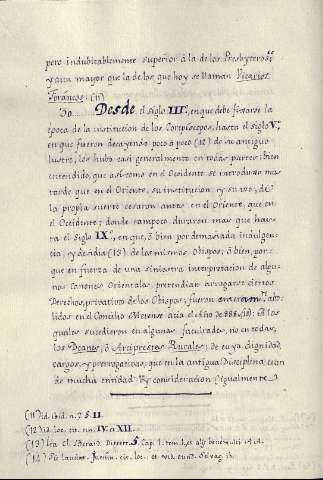 pero indubitablemente superior á la de los Presbyteros;
y aun mayor que la de los que hoy se llaman Vicarios
Foráneos: (11)
30 Desde el siglo III.º, en que debe fixarse la
época de la institucion de los Corepíscopos, hasta el siglo V.º
en que fueron decayendo poco á poco (12) de su antiguo
lustre, los hubo casi generalmente en todas partes: bien
entendido, que así como en el Occidente se introduxo mas
tarde que en el Oriente, su institucion, y su uso; de
la propia suerte cesaron antes en el Oriente, que en
el Occidente; donde tampoco duraron mas que has-
ta el siglo IX.º, en que, ó bien por demasiada indulgen-
cia, y desidia (13) de los mismos Obispos; ó bien, por-
que en fuerza de una siniestra interpretacion de algu-
nos Canones Orientales, pretendian arrogarse ciertos
Derechos, privativos de los Obispos; fueron enteram.te abo-
lidos en el Concilio Metense acia el Año de 888. (14): A los
quales sucedieron en algunas facultades, no en todas,
los Deanes, ó Arciprestes Rurales; de cuya dignidad,
cargos, y prerrogativas, que en la antigua Disciplina eran
de mucha entidad y consideracion (igualmente
(11) Id. ibid. n. 7. § 11.
(12) loc. cit. nn. IV. á XII.
(13)
(14) loc. et